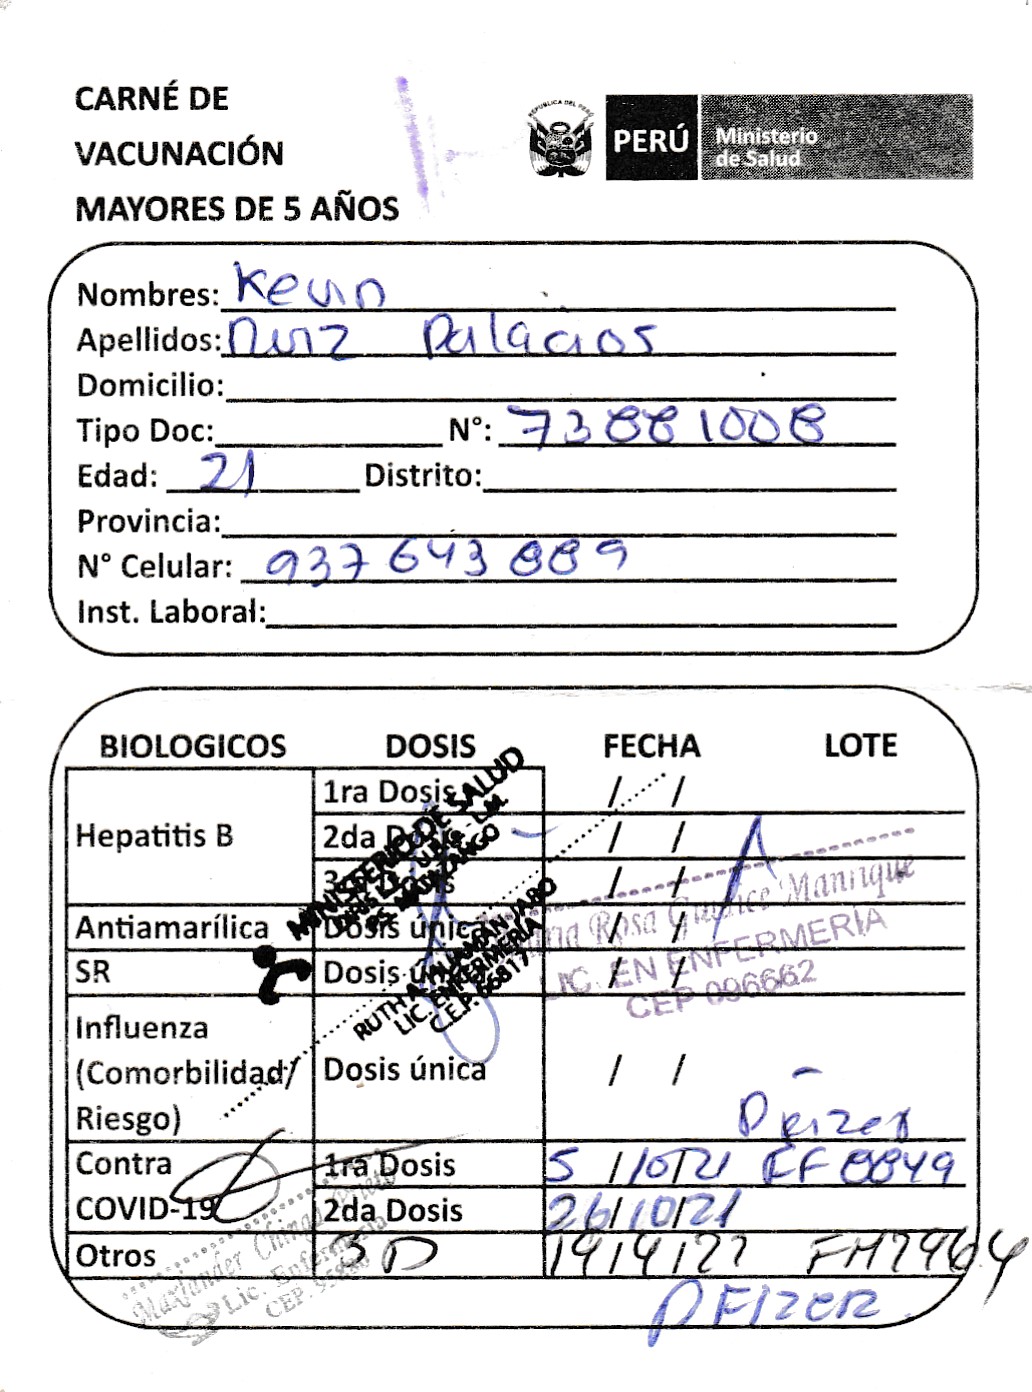 CARNÉ DE
VACUNACIÓN
MAYORES DE 5 AÑOS
REPUBLICA DEL PERÚ
PERÚ
Ministerio
de Salud
Nombres: Kevin
Apellidos: Ruiz Palacios
Domicilio:
Tipo Doc: N°: 73881008
Edad: 21 Distrito:
Provincia:
N° Celular: 937643889
Inst. Laboral:
BIOLOGICOS DOSIS FECHA LOTE
Hepatitis B
1ra Dosis / /
2da Dosis / /
3ra Dosis / /
Antiamarílica Dosis única / /
SR Dosis única / /
Influenza
(Comorbilidad/
Riesgo)
Dosis única / /
Pfizer
Contra
COVID-19
1ra Dosis 5 /10/21 FF8849
2da Dosis 26/10/21
Otros 3 D 19/4/22
PFIZER
MINISTERIO DE SALUD
RUTH A. HUAMAN JARO
LIC. ENFERMERÍA
C.E.P. 66817
Rosa Manrique
LIC. EN ENFERMERÍA
CEP 096662
Lic. Enfermería
CEP.